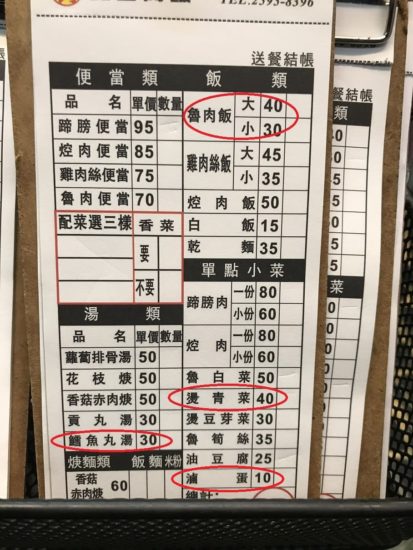 TEL:2595-8396
送餐結帳
便當類
品名 單價 數量
蹄膀便當 95
焢肉便當 85
雞肉絲便當 75
魯肉便當 70
配菜選三樣 香菜
要
不要
湯類
品名 單價 數量
蘿蔔排骨湯 50
花枝焿 50
香菇赤肉焿 50
貢丸湯 30
鱈魚丸湯 30
焿麵類 飯 麵 米粉
香菇
赤肉焿 60
飯類
魯肉飯 大 40
小 30
雞肉絲飯 大 45
小 35
焢肉飯 50
白飯 15
乾麵 35
單點小菜
蹄膀肉 一份 80
小份 60
焢肉 一份 80
小份 60
魯白菜 50
燙青菜 40
燙豆芽菜 30
魯筍絲 35
油豆腐 25
滷蛋 10
總計:
送餐結帳
類